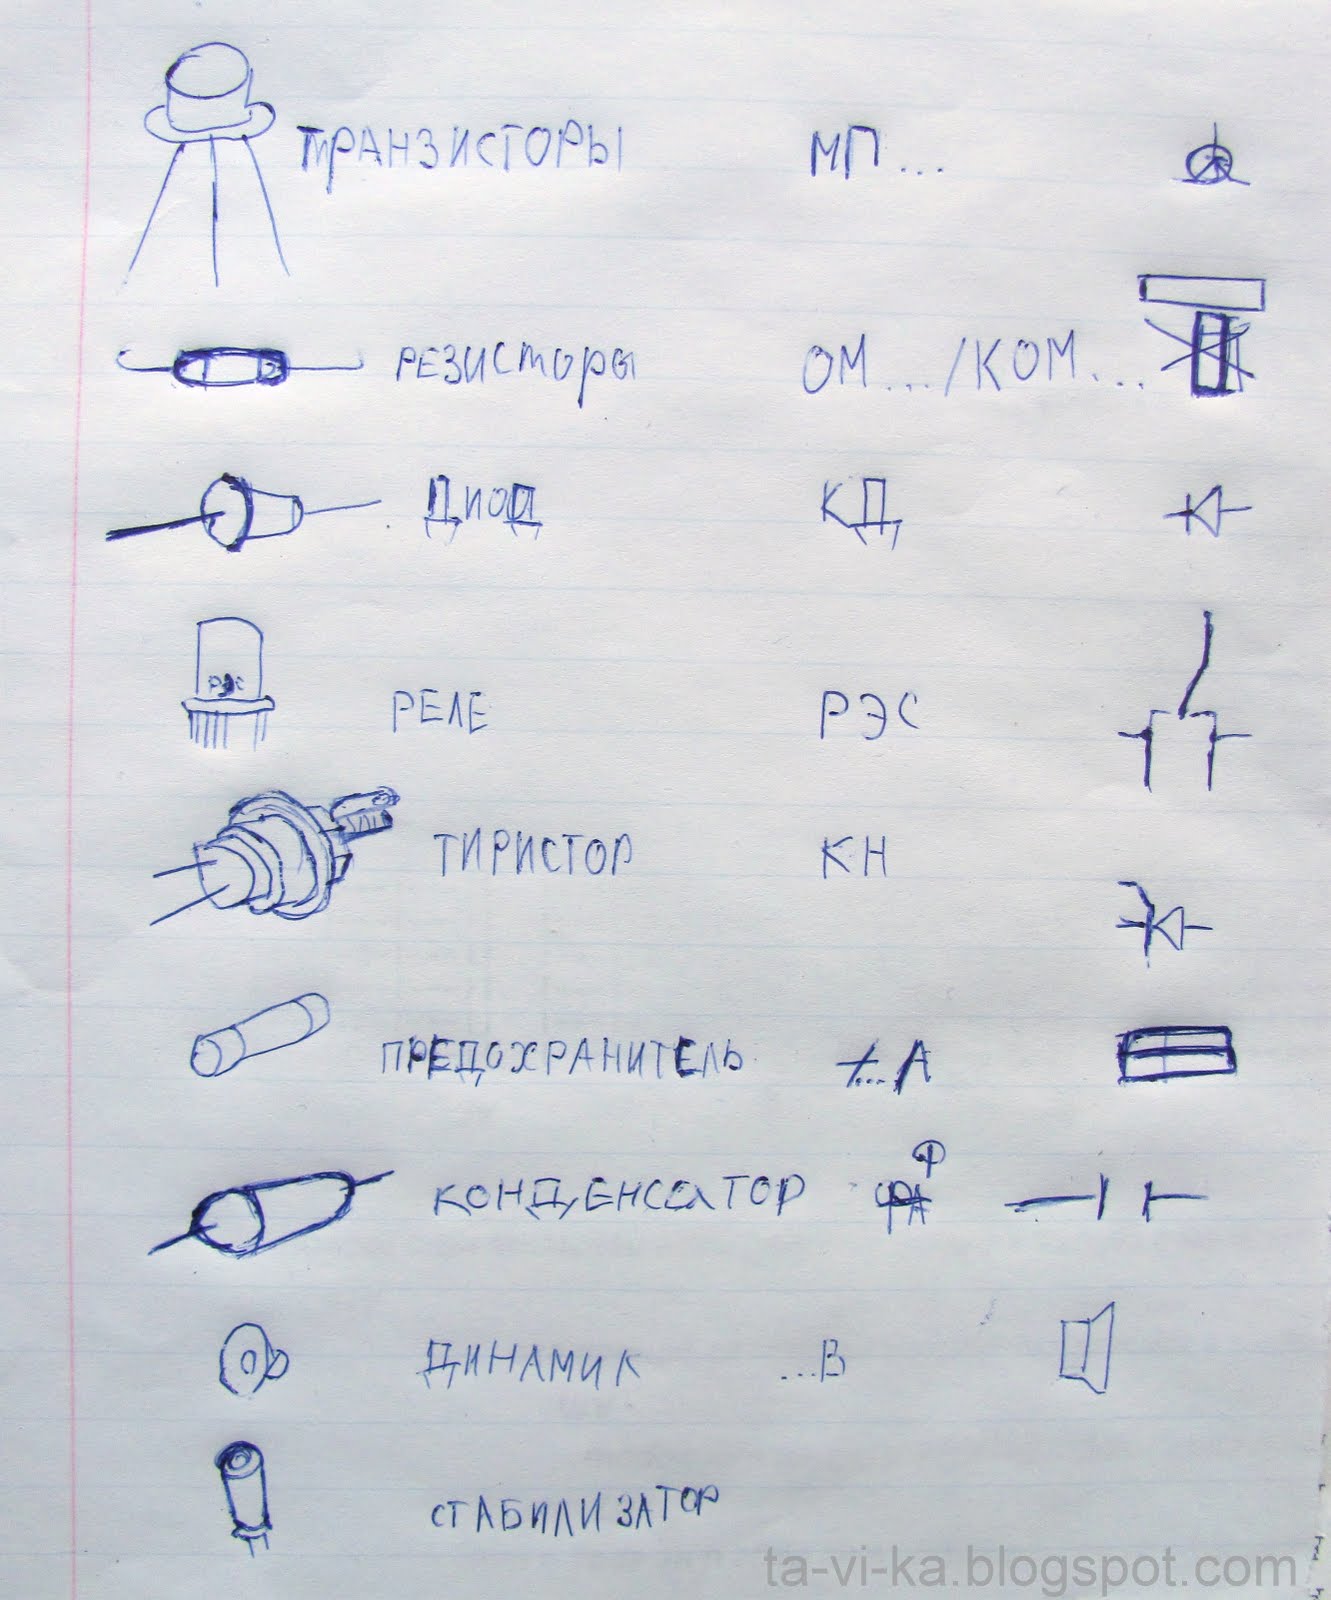 ТРАНЗИСТОРЫ МП...
РЕЗИСТОРЫ ОМ.../КОМ...
ДИОД КД
РЭС
РЕЛЕ РЭС
ТИРИСТОР КН
ПРЕДОХРАНИТЕЛЬ ...А
КОНДЕНСАТОР Ф
ДИНАМИК ...В
СТАБИЛИЗАТОР
ta-vi-ka.blogspot.com